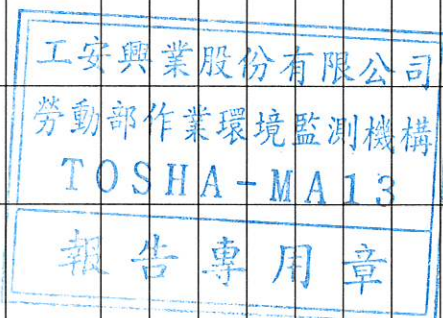 工安興業股份有限公司
勞動部作業環境監測機構
TOSHA-MA13
報告專用章